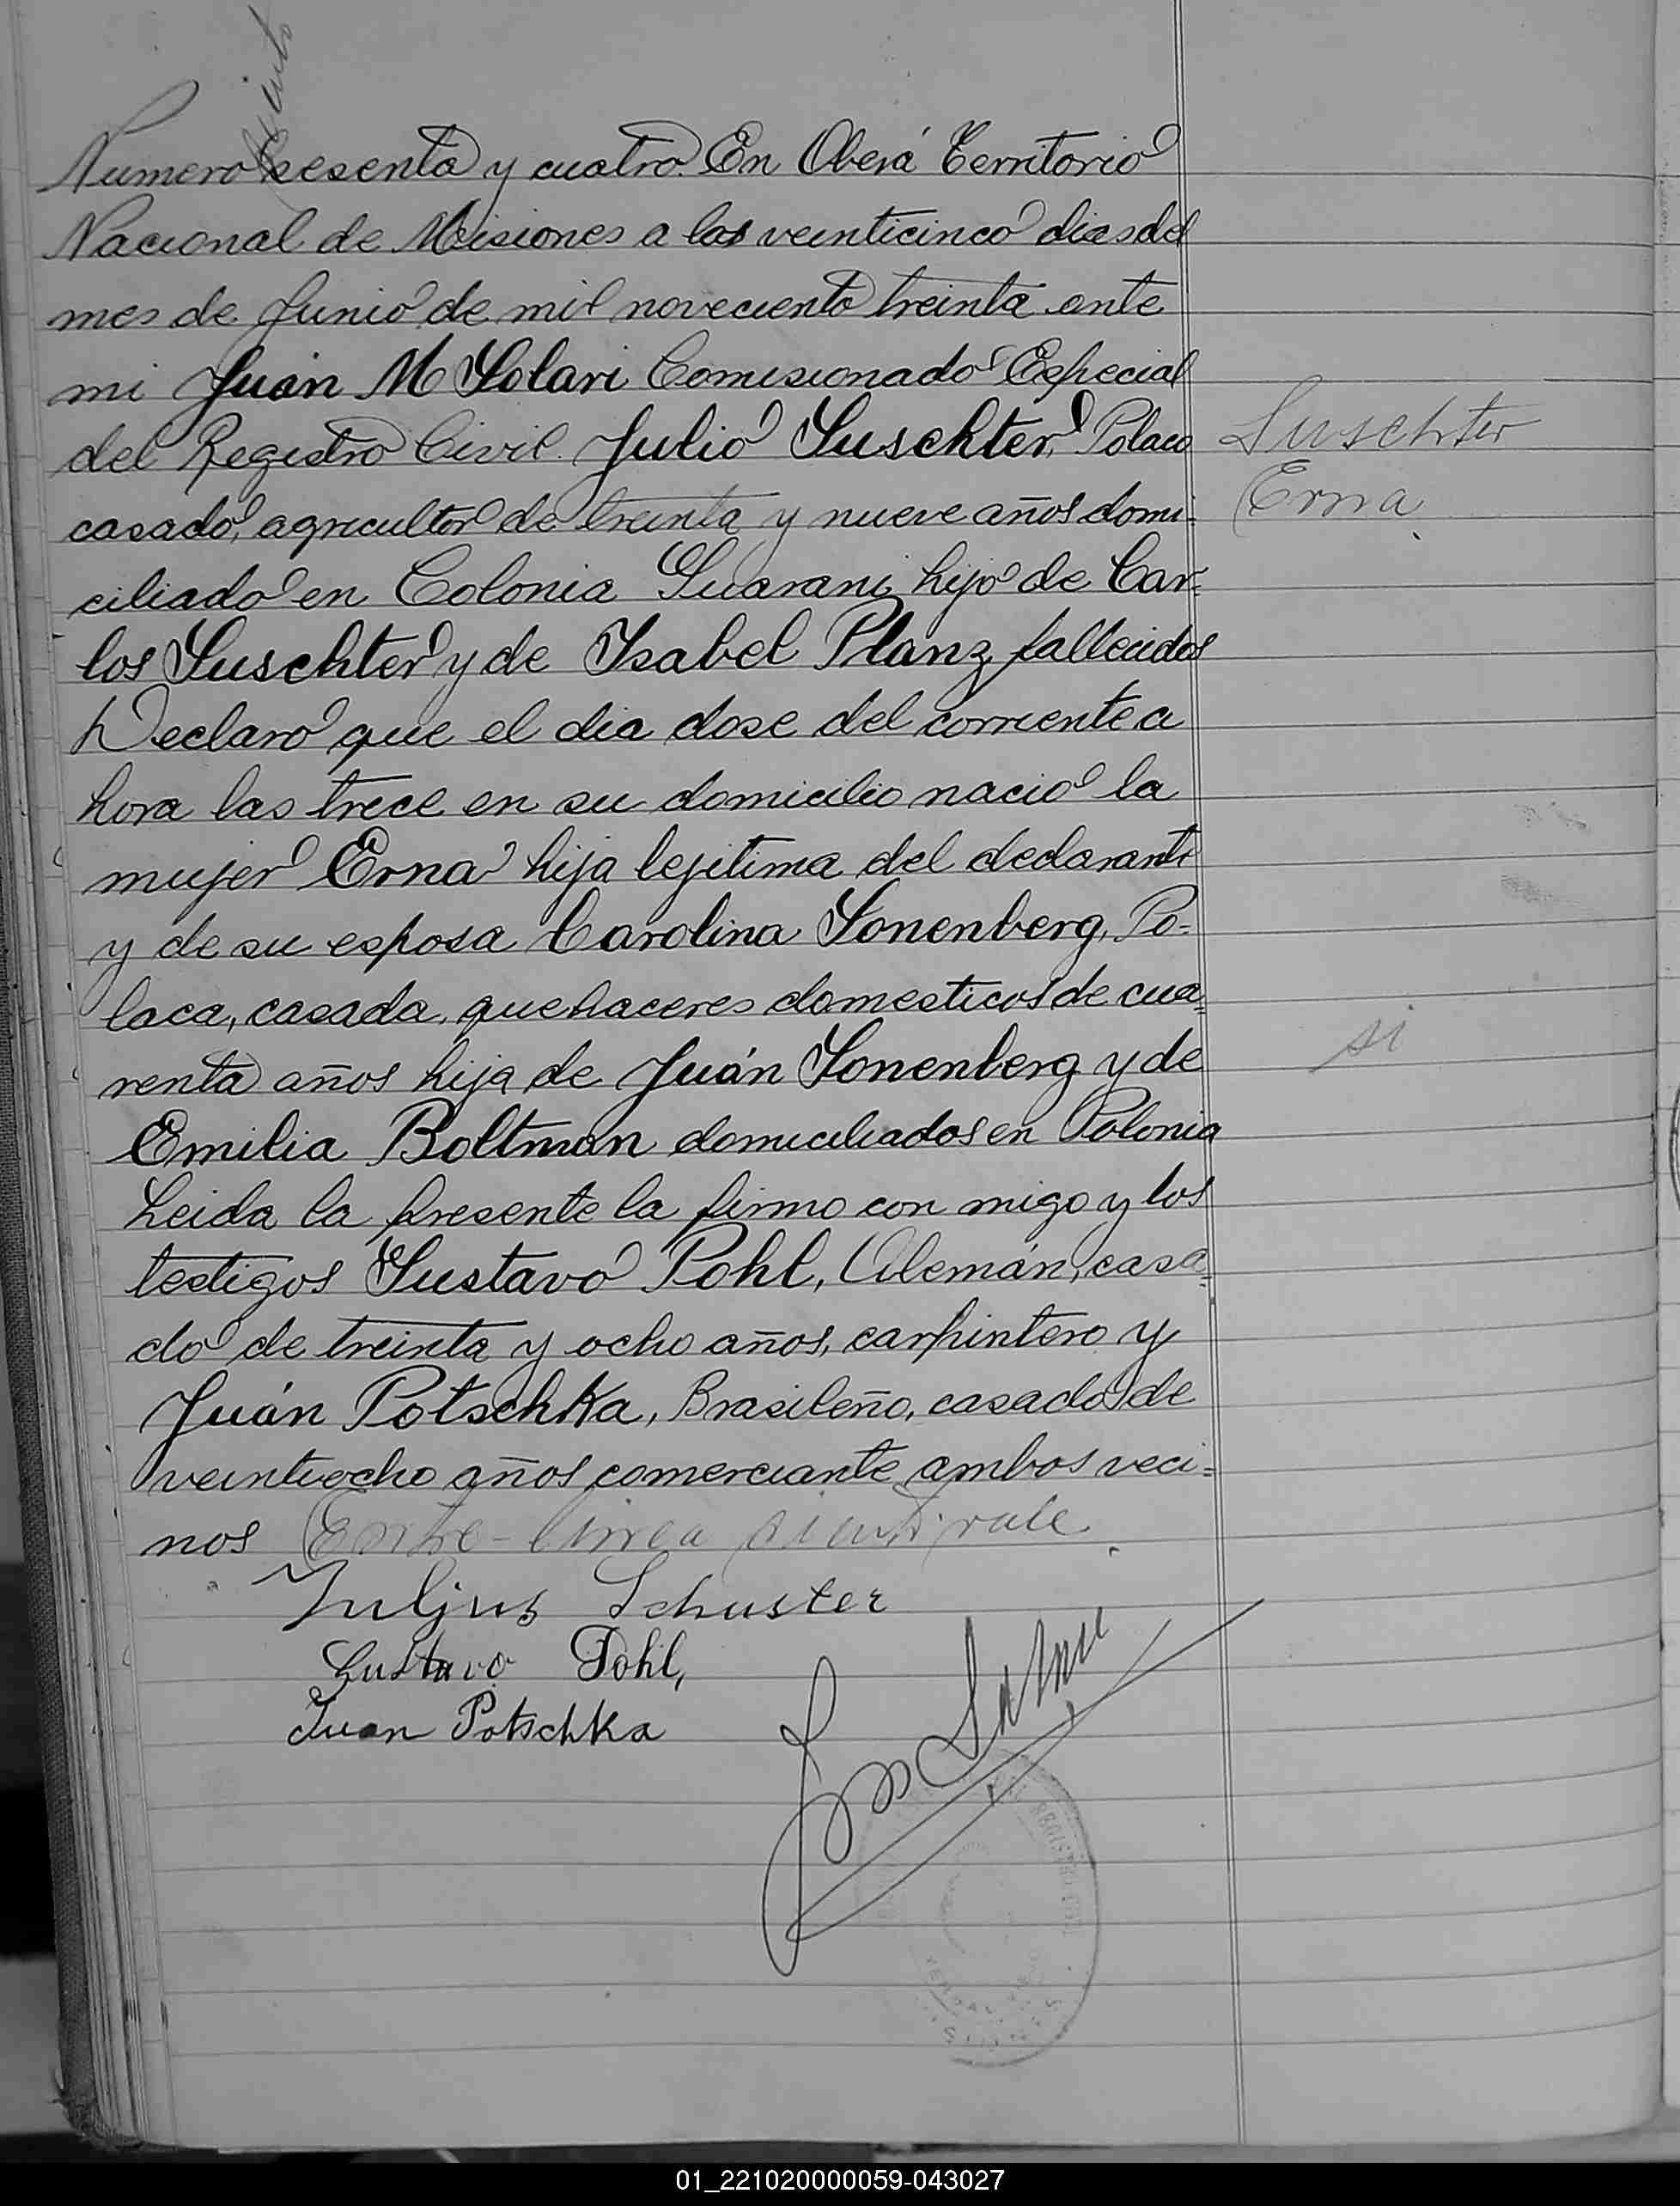 ciento
Numero sesenta y cuatro. En Oberá Territorio
Nacional de Misiones a los veinticinco dias del
mes de Junio de mil noveciento treinta ante
mi Juan M Solari Comisionado Especial
del Registro Civil. Julio Suschter, Polaco
Suschter
casado, agricultor de treinta y nueve años domi-
Erna
ciliado en Colonia Guarani hijo de Car-
los Suschter y de Isabel Planz fallecidos
Declaro que el dia dose del corriente a
hora las trece en su domicilio nacio la
mujer Erna hija lejitima del declarante
y de su esposa Carolina Sonenberg, Po-
laca, casada, quehaceres domesticos de cua-
renta años hija de Juán Sonenberg y de
si
Emilia Boltman domiciliados en Polonia
Leida la presente la firmo con migo y los
testigos Gustavo Pohl, Alemán, casa-
do de treinta y ocho años, carpintero y
Juán Potschka, Brasileño, casado de
veintiocho años comerciante ambos veci-
nos Entre-linea ciento vale.
Juljus Schuster
Gustavo Pohl,
Juan Potschka
01_221020000059-043027